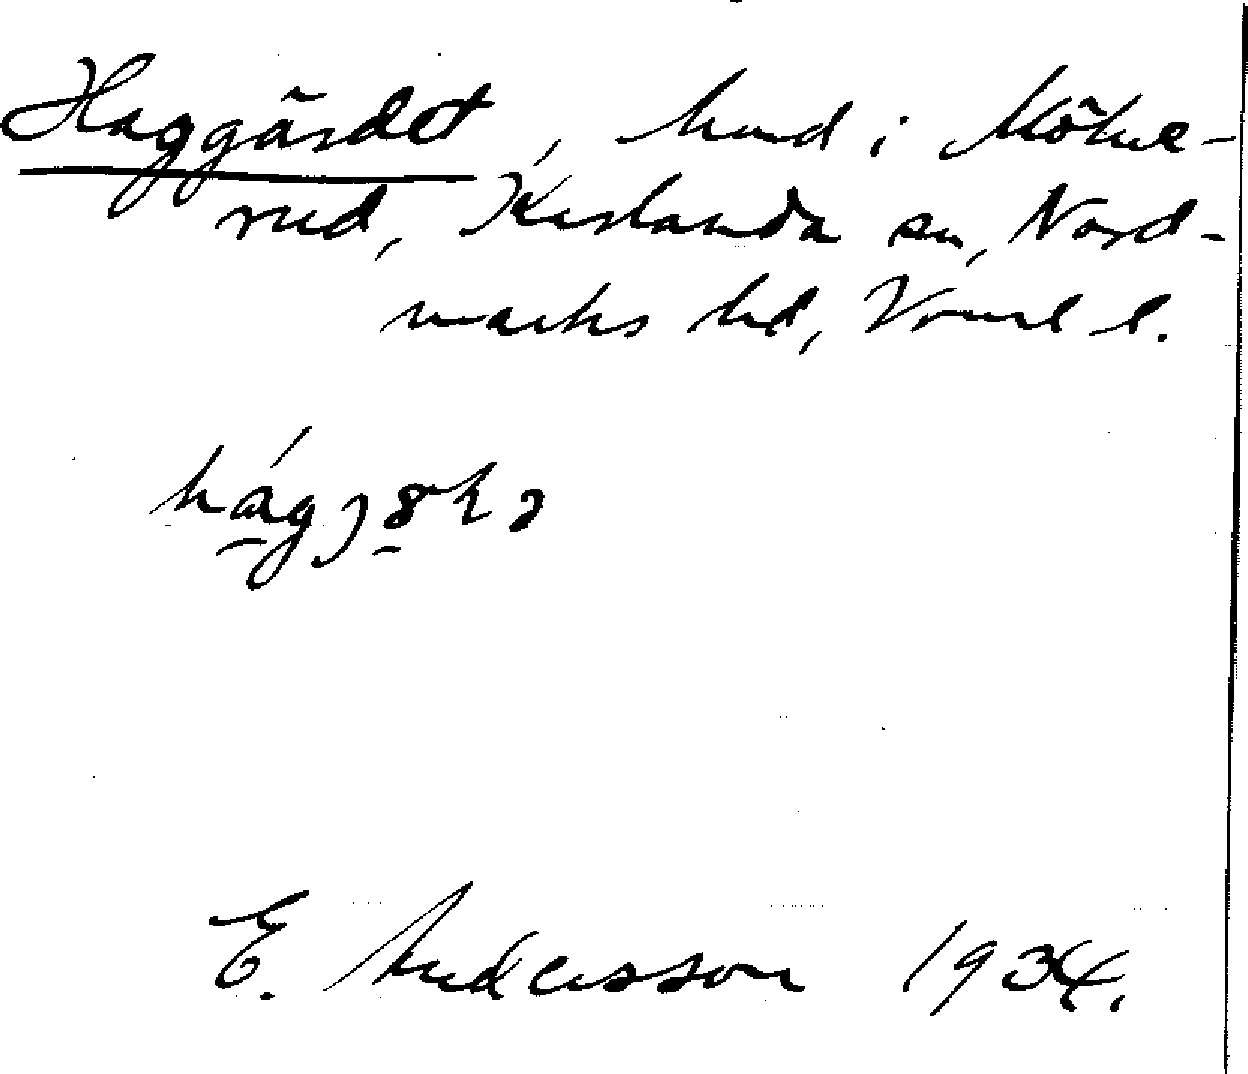 Haggärdet, hmd i Mölne-
rud, Karlanda sn, Nord-
marks hd, Vrml l.
E. Andersson 1934.